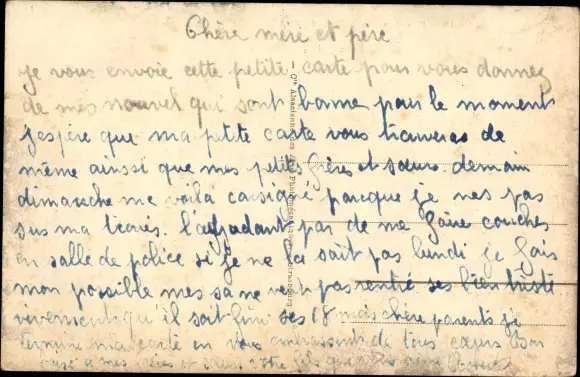 Chère mère et père
je vous envoie cette petite carte pour vous donnez
de mes nouvel qui sont bonne pour le moment
jespère que ma petite carte vous trouveras de
même ainsi que mes petits frères et sœurs. demain
dimanche me voilà consigné parceque je nes pas
sus ma téorié. l'adjudant pas de me faire coucher
en salle de police si je ne la sait pas lundi je fais
mon possible mes sa ne veut pas rentré ses bien triste
vivement qu'il soit fini ses 18 mois chère parents je
termine ma carte en vous embrassants de tous cœurs Bon
à mes frères et sœurs votre fils que